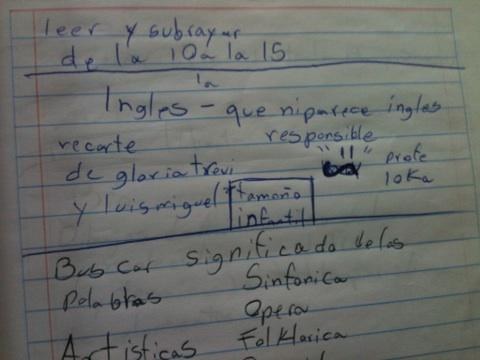 leer y subrayar
de la 10 a la 15
la
Ingles - que niparece ingles
recorte responsible
de gloria trevi "!!" profe
y luis miguel * tamaño loKa
infantil
Buscar significado delas
Palabras Sinfonica
Opera
Artisticas Folklarica